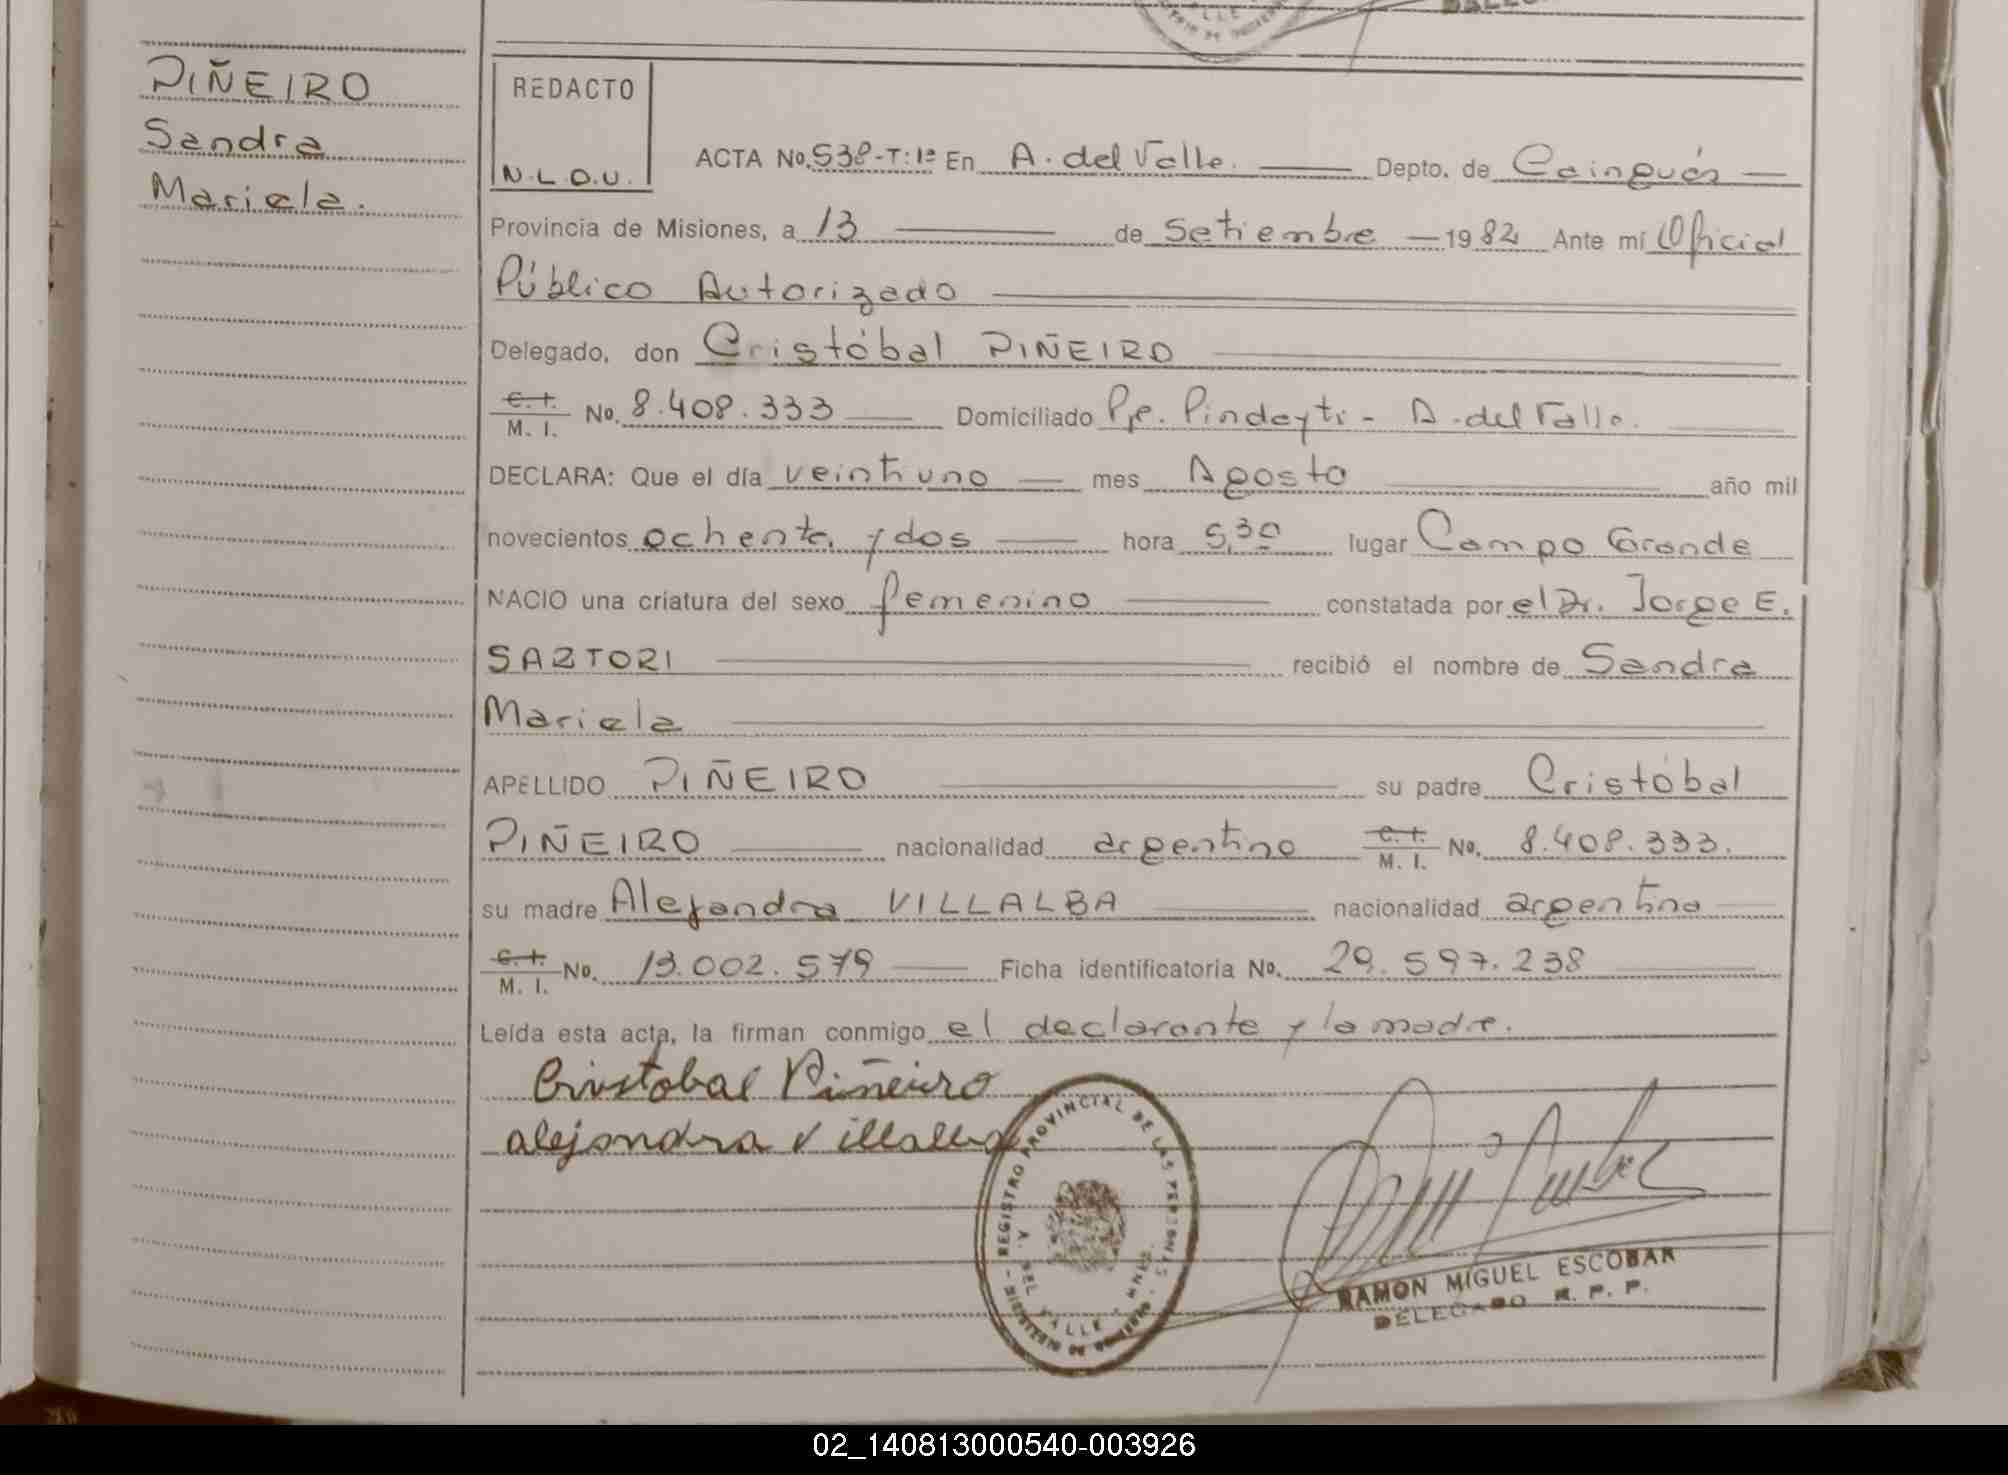 PIÑEIRO
Sandra
Mariela.
REDACTO
N.L.D.U.
ACTA No. 538-T:1ª En A. del Valle. Depto. de Cainguás
Provincia de Misiones, a 13 de Setiembre 1982 Ante mi Oficial
Público Autorizado
Delegado, don Cristóbal PIÑEIRO
C. I. M. I. No. 8.408.333 Domiciliado Pje. Pindayti - A. del Valle.
DECLARA: Que el día veintiuno mes Agosto año mil
novecientos ochenta y dos hora 5,30 lugar Campo Grande
NACIO una criatura del sexo femenino constatada por el Dr. Jorge E.
SARTORI recibió el nombre de Sandra
Mariela
APELLIDO PIÑEIRO su padre Cristóbal
PIÑEIRO nacionalidad argentino C. I. M. I. No. 8.408.333.
su madre Alejandra VILLALBA nacionalidad argentina
C. I. M. I. No. 13.002.579 Ficha identificatoria No. 29.597.238
Leída esta acta, la firman conmigo el declarante y la madre.
Cristobal Piñeiro
alejandra Villalba
REGISTRO PROVINCIAL DE LAS PERSONAS
A. DEL VALLE
RAMON MIGUEL ESCOBAR
DELEGADO R. P. P.
02_140813000540-003926